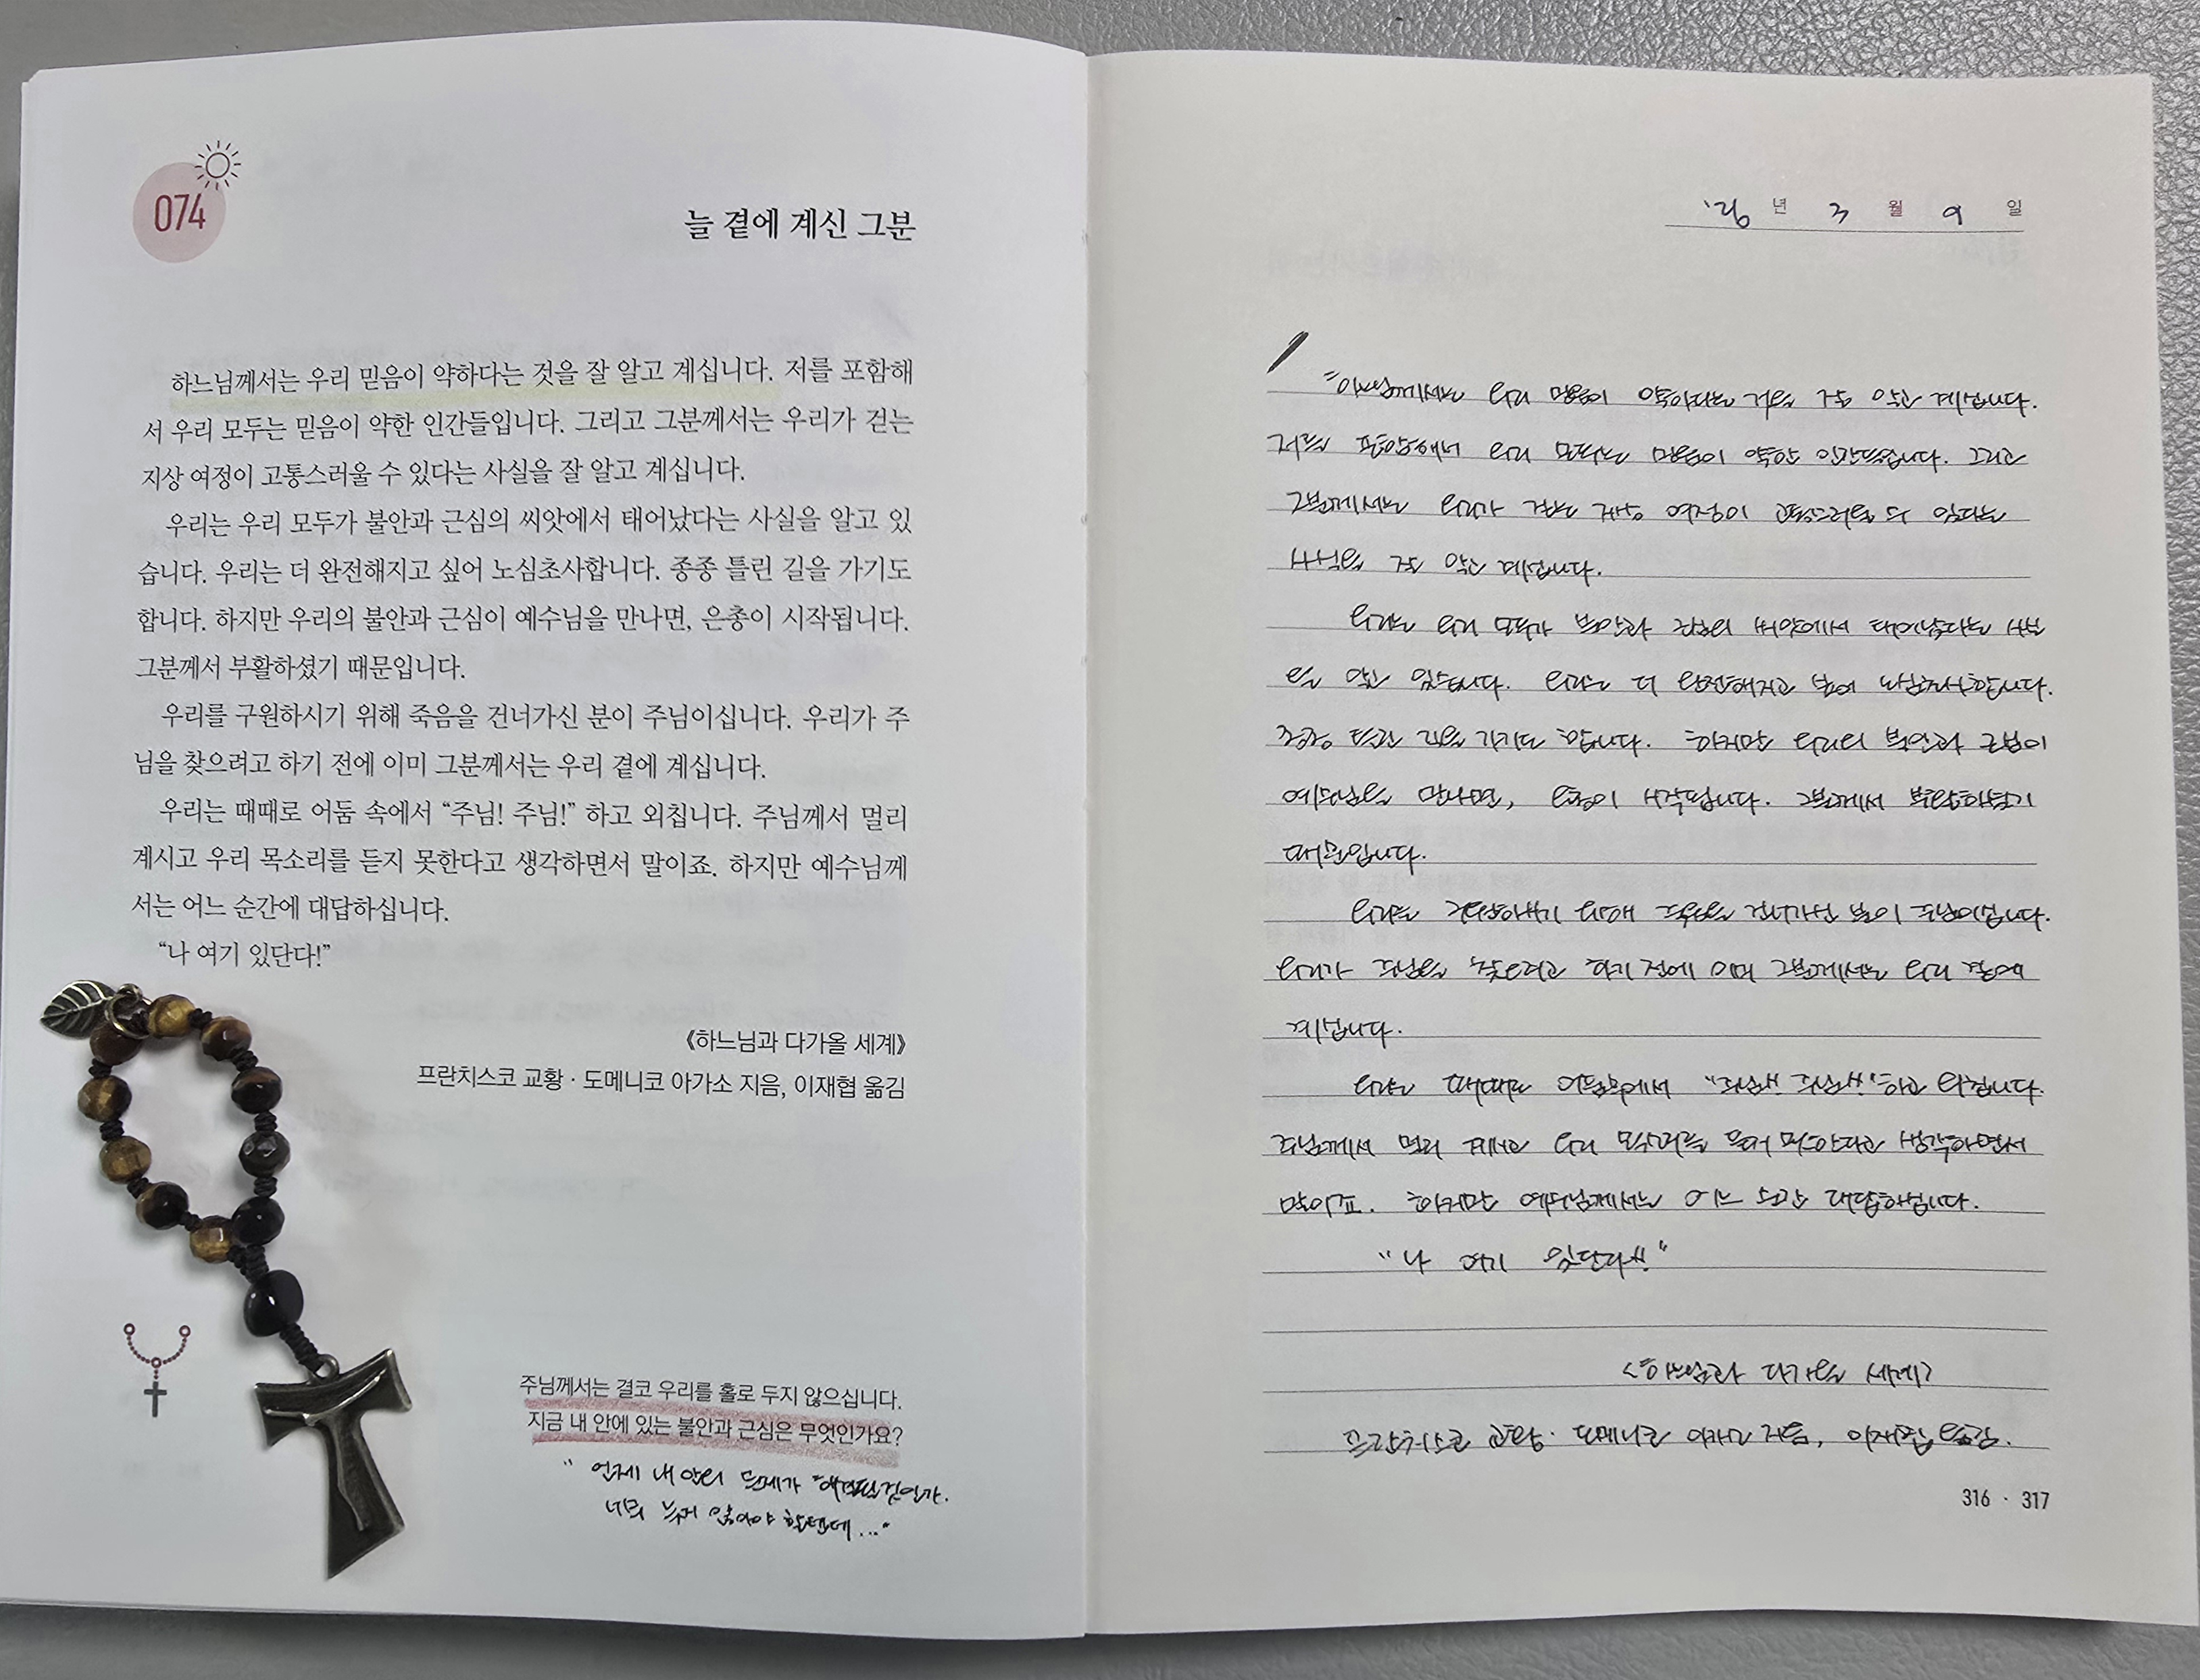 074
늘 곁에 계신 그분
하느님께서는 우리 믿음이 약하다는 것을 잘 알고 계십니다. 저를 포함해
서 우리 모두는 믿음이 약한 인간들입니다. 그리고 그분께서는 우리가 걷는
지상 여정이 고통스러울 수 있다는 사실을 잘 알고 계십니다.
우리는 우리 모두가 불안과 근심의 씨앗에서 태어났다는 사실을 알고 있
습니다. 우리는 더 완전해지고 싶어 노심초사합니다. 종종 틀린 길을 가기도
합니다. 하지만 우리의 불안과 근심이 예수님을 만나면, 은총이 시작됩니다.
그분께서 부활하셨기 때문입니다.
우리를 구원하시기 위해 죽음을 건너가신 분이 주님이십니다. 우리가 주
님을 찾으려고 하기 전에 이미 그분께서는 우리 곁에 계십니다.
우리는 때때로 어둠 속에서 “주님! 주님!” 하고 외칩니다. 주님께서 멀리
계시고 우리 목소리를 듣지 못한다고 생각하면서 말이죠. 하지만 예수님께
서는 어느 순간에 대답하십니다.
“나 여기 있단다!”
《하느님과 다가올 세계》
프란치스코 교황 · 도메니코 아가소 지음, 이재협 옮김
주님께서는 결코 우리를 홀로 두지 않으십니다.
지금 내 안에 있는 불안과 근심은 무엇인가요?
" 언제 내 안의 문제가 해결될 것인가.
너무 늦지 않아야 할텐데..."
'26 년 3 월 9 일
하느님께서는 우리 믿음이 약하다는 것을 잘 알고 계십니다.
저를 포함해서 우리 모두는 믿음이 약한 인간들입니다. 그리고
그분께서는 우리가 걷는 지상 여정이 고통스러울 수 있다는
사실을 잘 알고 계십니다.
우리는 우리 모두가 불안과 근심의 씨앗에서 태어났다는 사실
을 알고 있습니다. 우리는 더 완전해지고 싶어 노심초사합니다.
종종 틀린 길을 가기도 합니다. 하지만 우리의 불안과 근심이
예수님을 만나면, 은총이 시작됩니다. 그분께서 부활하셨기
때문입니다.
우리를 위해 죽음을 건너가신 분이 주님이십니다.
우리가 주님을 찾으려고 하기 전에 이미 그분께서는 우리 곁에
계십니다.
우리는 때때로 어둠 속에서 "주님!! 주님!!" 하고 외칩니다.
주님께서 멀리 계시고 우리 목소리를 듣지 못한다고 생각하면서
말이죠. 하지만 예수님께서는 어느 순간 대답하십니다.
"나 여기 있단다!!"
<하느님과 다가올 세계>
프란치스코 교황· 도메니코 아가소 지음, 이재협 옮김.
316 · 317